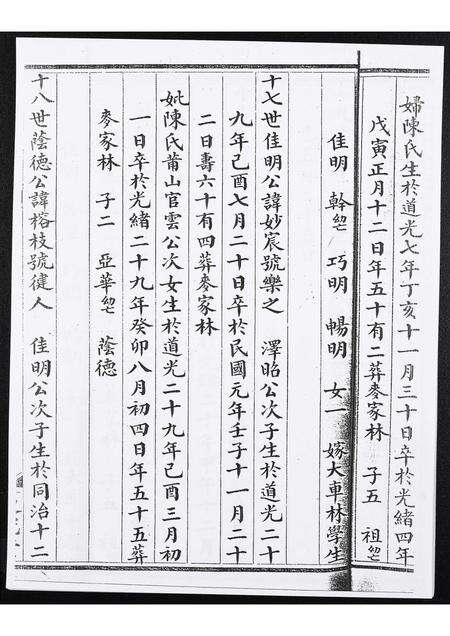 婦陳氏生於道光七年丁亥十一月三十日卒於光緒四年
戊寅正月十二日年五十有二葬麥家林 子五 祖
佳明 幹 巧明 暢明 女一 嫁大車林學生
十七世佳明公諱妙宸號樂之 澤昭公次子生於道光二十
九年己酉七月二十日卒於民國元年壬子十一月二十
二日壽六十有四葬麥家林
妣陳氏莆山官雲公次女生於道光二十九年己酉三月初
一日卒於光緒二十九年癸卯八月初四日年五十五葬
麥家林 子二 亞華 蔭德
十八世蔭德公諱榕枝號健人 佳明公次子生於同治十二